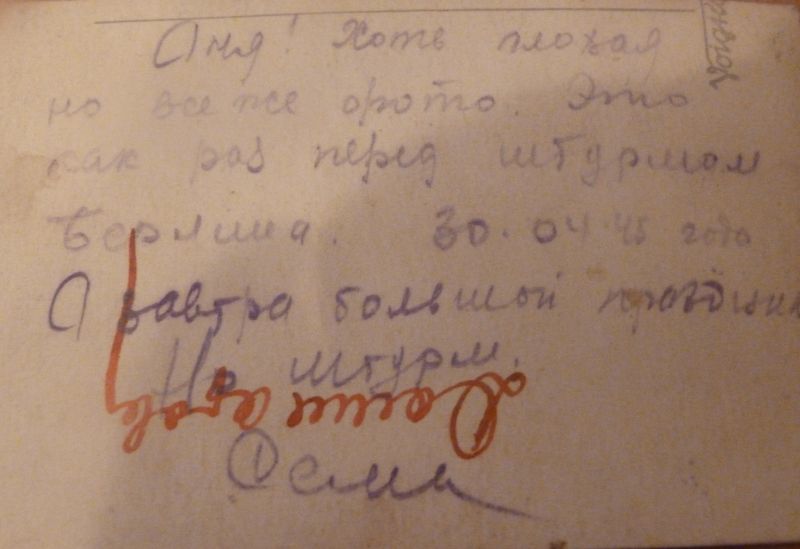 Аня! Хоть плохая
но все же фото. Это
как раз перед штурмом
Берлина. 30.04.45 года
А завтра большой праздник
На штурм.
Сеня